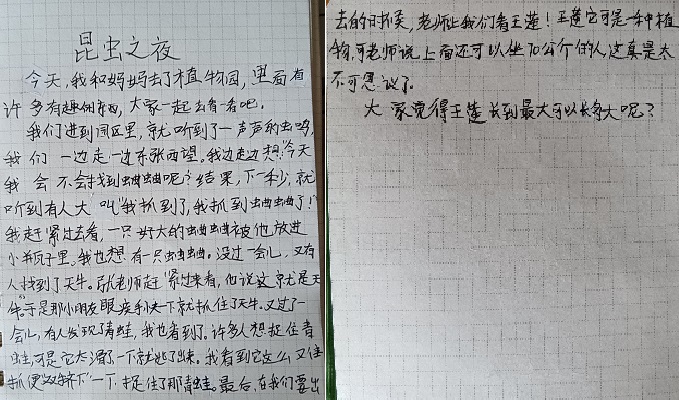 昆虫之夜
今天,我和妈妈去了植物园,里面有
许多有趣的东西,大家一起去看看吧。
我们进到园区里,就听到了一声声的虫鸣,
我们一边走一边东张西望。我边走边想:今天
我会不会找到蛐蛐呢?结果,下一秒,就
听到有人大叫“我抓到了,我抓到蛐蛐了!”
我赶紧过去看,一只好大的蛐蛐被他放进
小瓶子里。我也想有一只蛐蛐。没过一会儿,又有
人找到了天牛。张老师赶紧过来看,他说这就是天
牛。于是那小朋友眼疾手快一下就抓住了天牛。又过了一
会儿,有人发现了青蛙,我也看到了。许多人想捉住青
蛙,可是它太滑了一下就逃了出来。我看到它这么
抓便一下捉住了那青蛙。最后,在我们要出
去的时候,老师让我们看王莲!王莲它可是一种植
物,可老师说上面还可以坐70公斤的人,这真是太
不可思议了。
大家觉得王莲长到最大可以长多大呢?